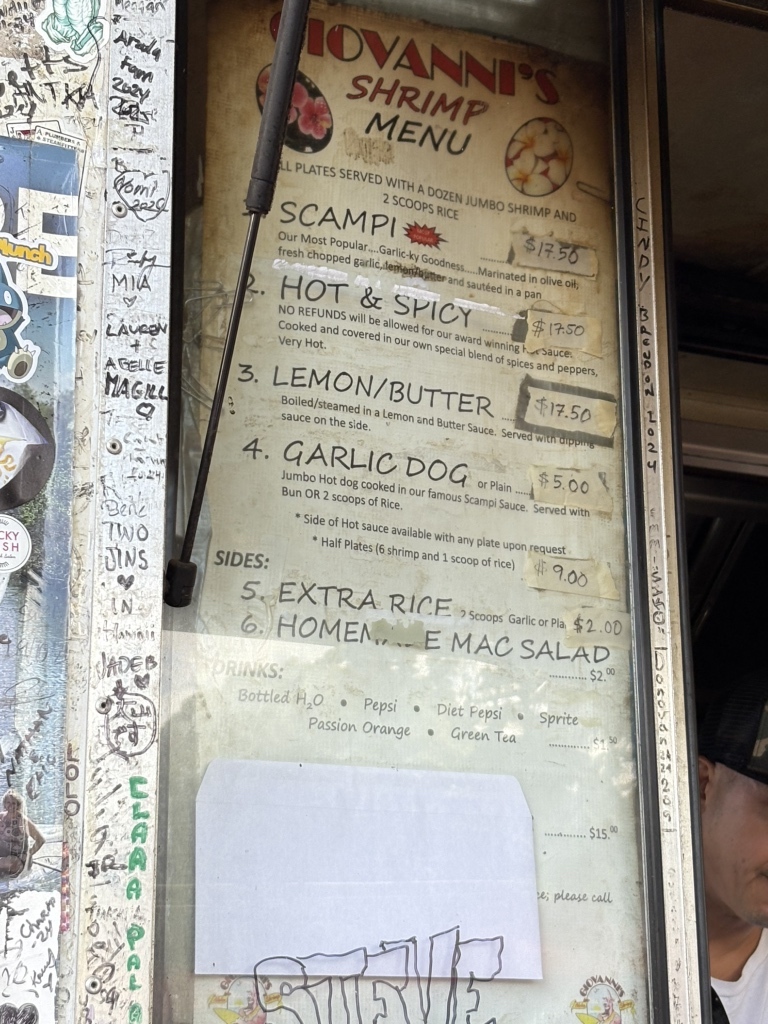 GIOVANNI'S
SHRIMP
MENU
ALL PLATES SERVED WITH A DOZEN JUMBO SHRIMP AND
2 SCOOPS RICE
SCAMPI $17.50
Our Most Popular....Garlic-ky Goodness.....Marinated in olive oil,
fresh chopped garlic, lemon/butter and sautéed in a pan
2. HOT & SPICY .......... $17.50
NO REFUNDS will be allowed for our award winning Hot Sauce.
Cooked and covered in our own special blend of spices and peppers,
Very Hot.
3. LEMON/BUTTER .... $17.50
Boiled/steamed in a Lemon and Butter Sauce. Served with dipping
sauce on the side.
4. GARLIC DOG or Plain ..... $5.00
Jumbo Hot dog cooked in our famous Scampi Sauce. Served with
Bun OR 2 scoops of Rice.
* Side of Hot sauce available with any plate upon request
* Half Plates (6 shrimp and 1 scoop of rice) $9.00
SIDES:
5. EXTRA RICE 2 Scoops Garlic or Pla $2.00
6. HOMEM E MAC SALAD
............ $2.00
DRINKS:
Bottled H2O • Pepsi • Diet Pepsi • Sprite
Passion Orange • Green Tea
............ $1.50
............ $15.00
ce; please call
STEVE
GIOVANNI'S
GIOVANNI'S
Munch
MIA
LAUREN
+
ABELLE
MAGILL
TWO
JINS
IN
JADEB
CLARA PAL
LOLO
CINDY BRENDON 2024